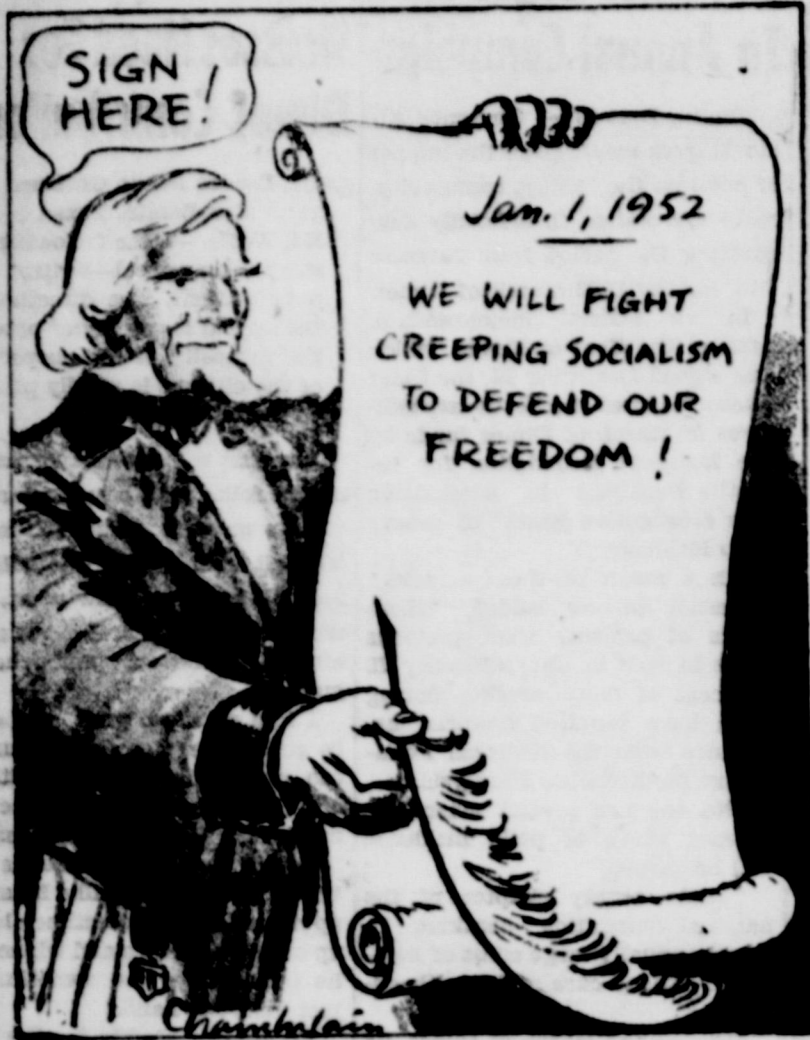 SIGN
HERE!
Jan. 1, 1952
WE WILL FIGHT
CREEPING SOCIALISM
TO DEFEND OUR
FREEDOM!
Chamberlain